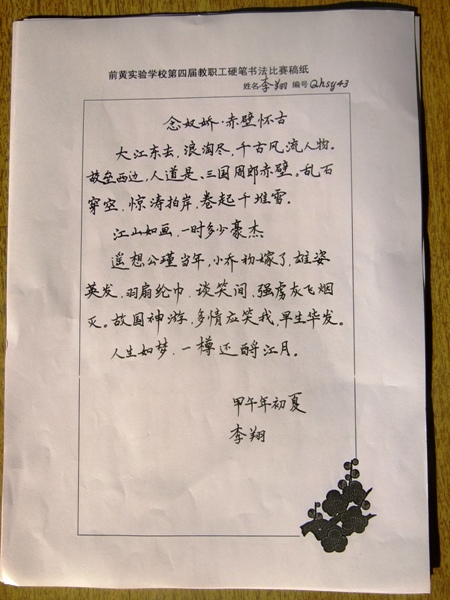 前黄实验学校第四届教职工硬笔书法比赛稿纸
姓名李翔 编号Qhsy43
念奴娇·赤壁怀古
大江东去,浪淘尽,千古风流人物。
故垒西边,人道是、三国周郎赤壁。乱石
穿空,惊涛拍岸,卷起千堆雪。
江山如画,一时多少豪杰
遥想公瑾当年,小乔初嫁了,雄姿
英发,羽扇纶巾,谈笑间,强虏灰飞烟
灭。故国神游,多情应笑我,早生华发。
人生如梦,一樽还酹江月。
甲午年初夏
李翔